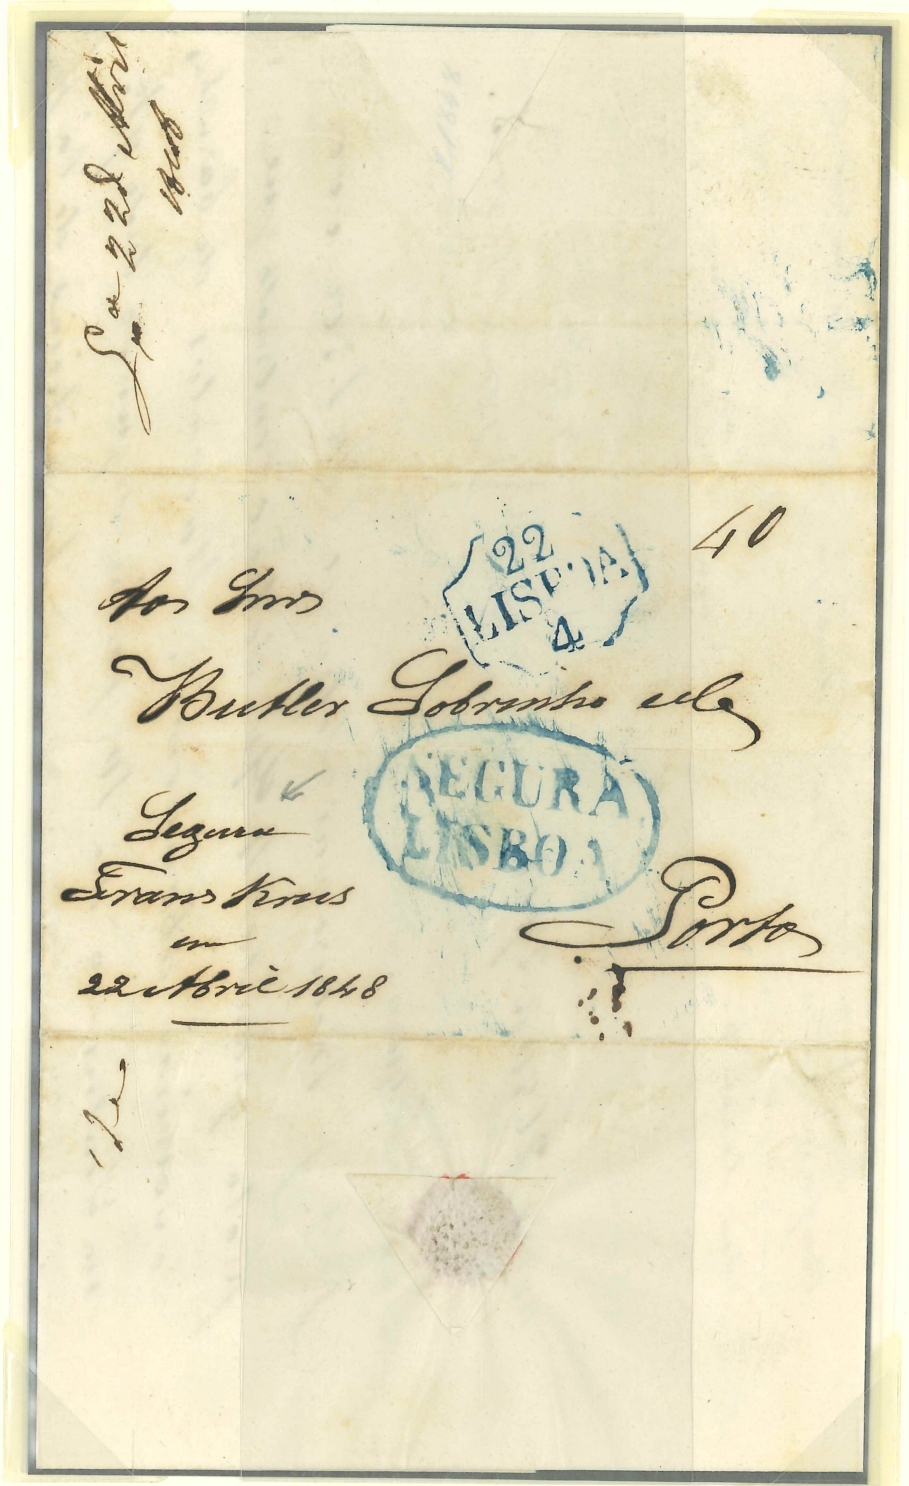 22 d Abril
22
LISBOA
4
40
Aos Snrs
Butler Sobrinho e Ca
SEGURA
LISBOA
Segura
Frans Krus
em
22 Abril 1848
Porto